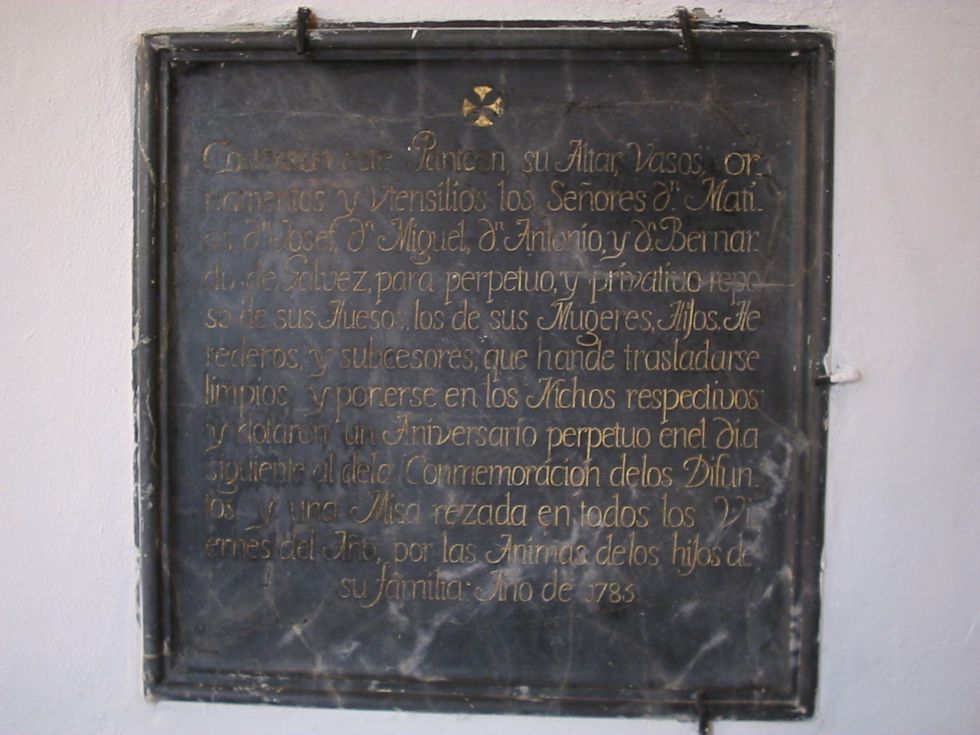 Costearon este Panteon, su Altar, Vasos, or-
namentos y Vtensilios los Señores dⁿ. Mati-
as dⁿ. Josef, dⁿ. Miguel, dⁿ. Antonio, y dⁿ. Bernar-
do de Galvez, para perpetuo, y privativo repo-
so de sus Huesos, los de sus Mugeres, Hijos. He
rederos, y subcesores, que hande trasladarse
limpios, y ponerse en los Nichos respectivos
y dotaron un Aniversario perpetuo enel dia
siguiente al dela Conmemoración delos Difun-
tos, y una Misa rezada en todos los Vi-
ernes del Año, por las Animas delos hijos de
su familia. Año de 1785.